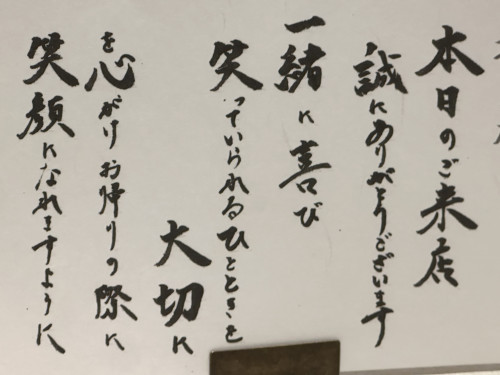 本日のご来店
誠にありがとうございます
一緒に喜び
笑っていられるひとときを
大切に
を心がけお帰りの際に
笑顔になれますように